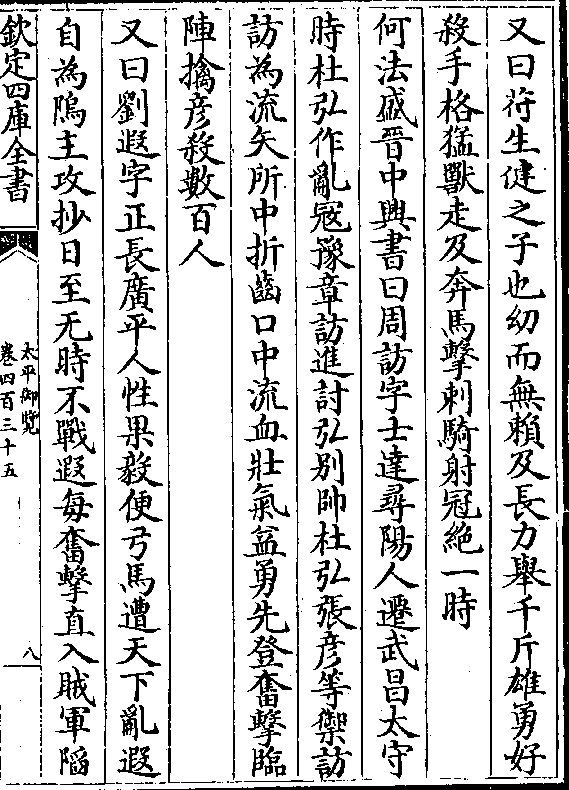 又曰苻生健之子也幼而無賴及長力舉千斤雄勇好
殺手格猛獸走及奔馬擊刺騎射冠絶一時
何法盛晉中興書曰周訪字士達尋陽人遷武昌太守
時杜弘作亂寇豫章訪進討弘别帥杜弘張彦等禦訪
訪為流矢所中折齒口中流血壯氣益勇先登奮擊臨
陣擒彦殺數百人
又曰劉遐字正長廣平人性果毅便弓馬遭天下亂遐
自為隖主攻抄日至无時不戰遐每奮擊直入賊軍陷
欽定四庫全書
太平御覽
卷四百三十五
八